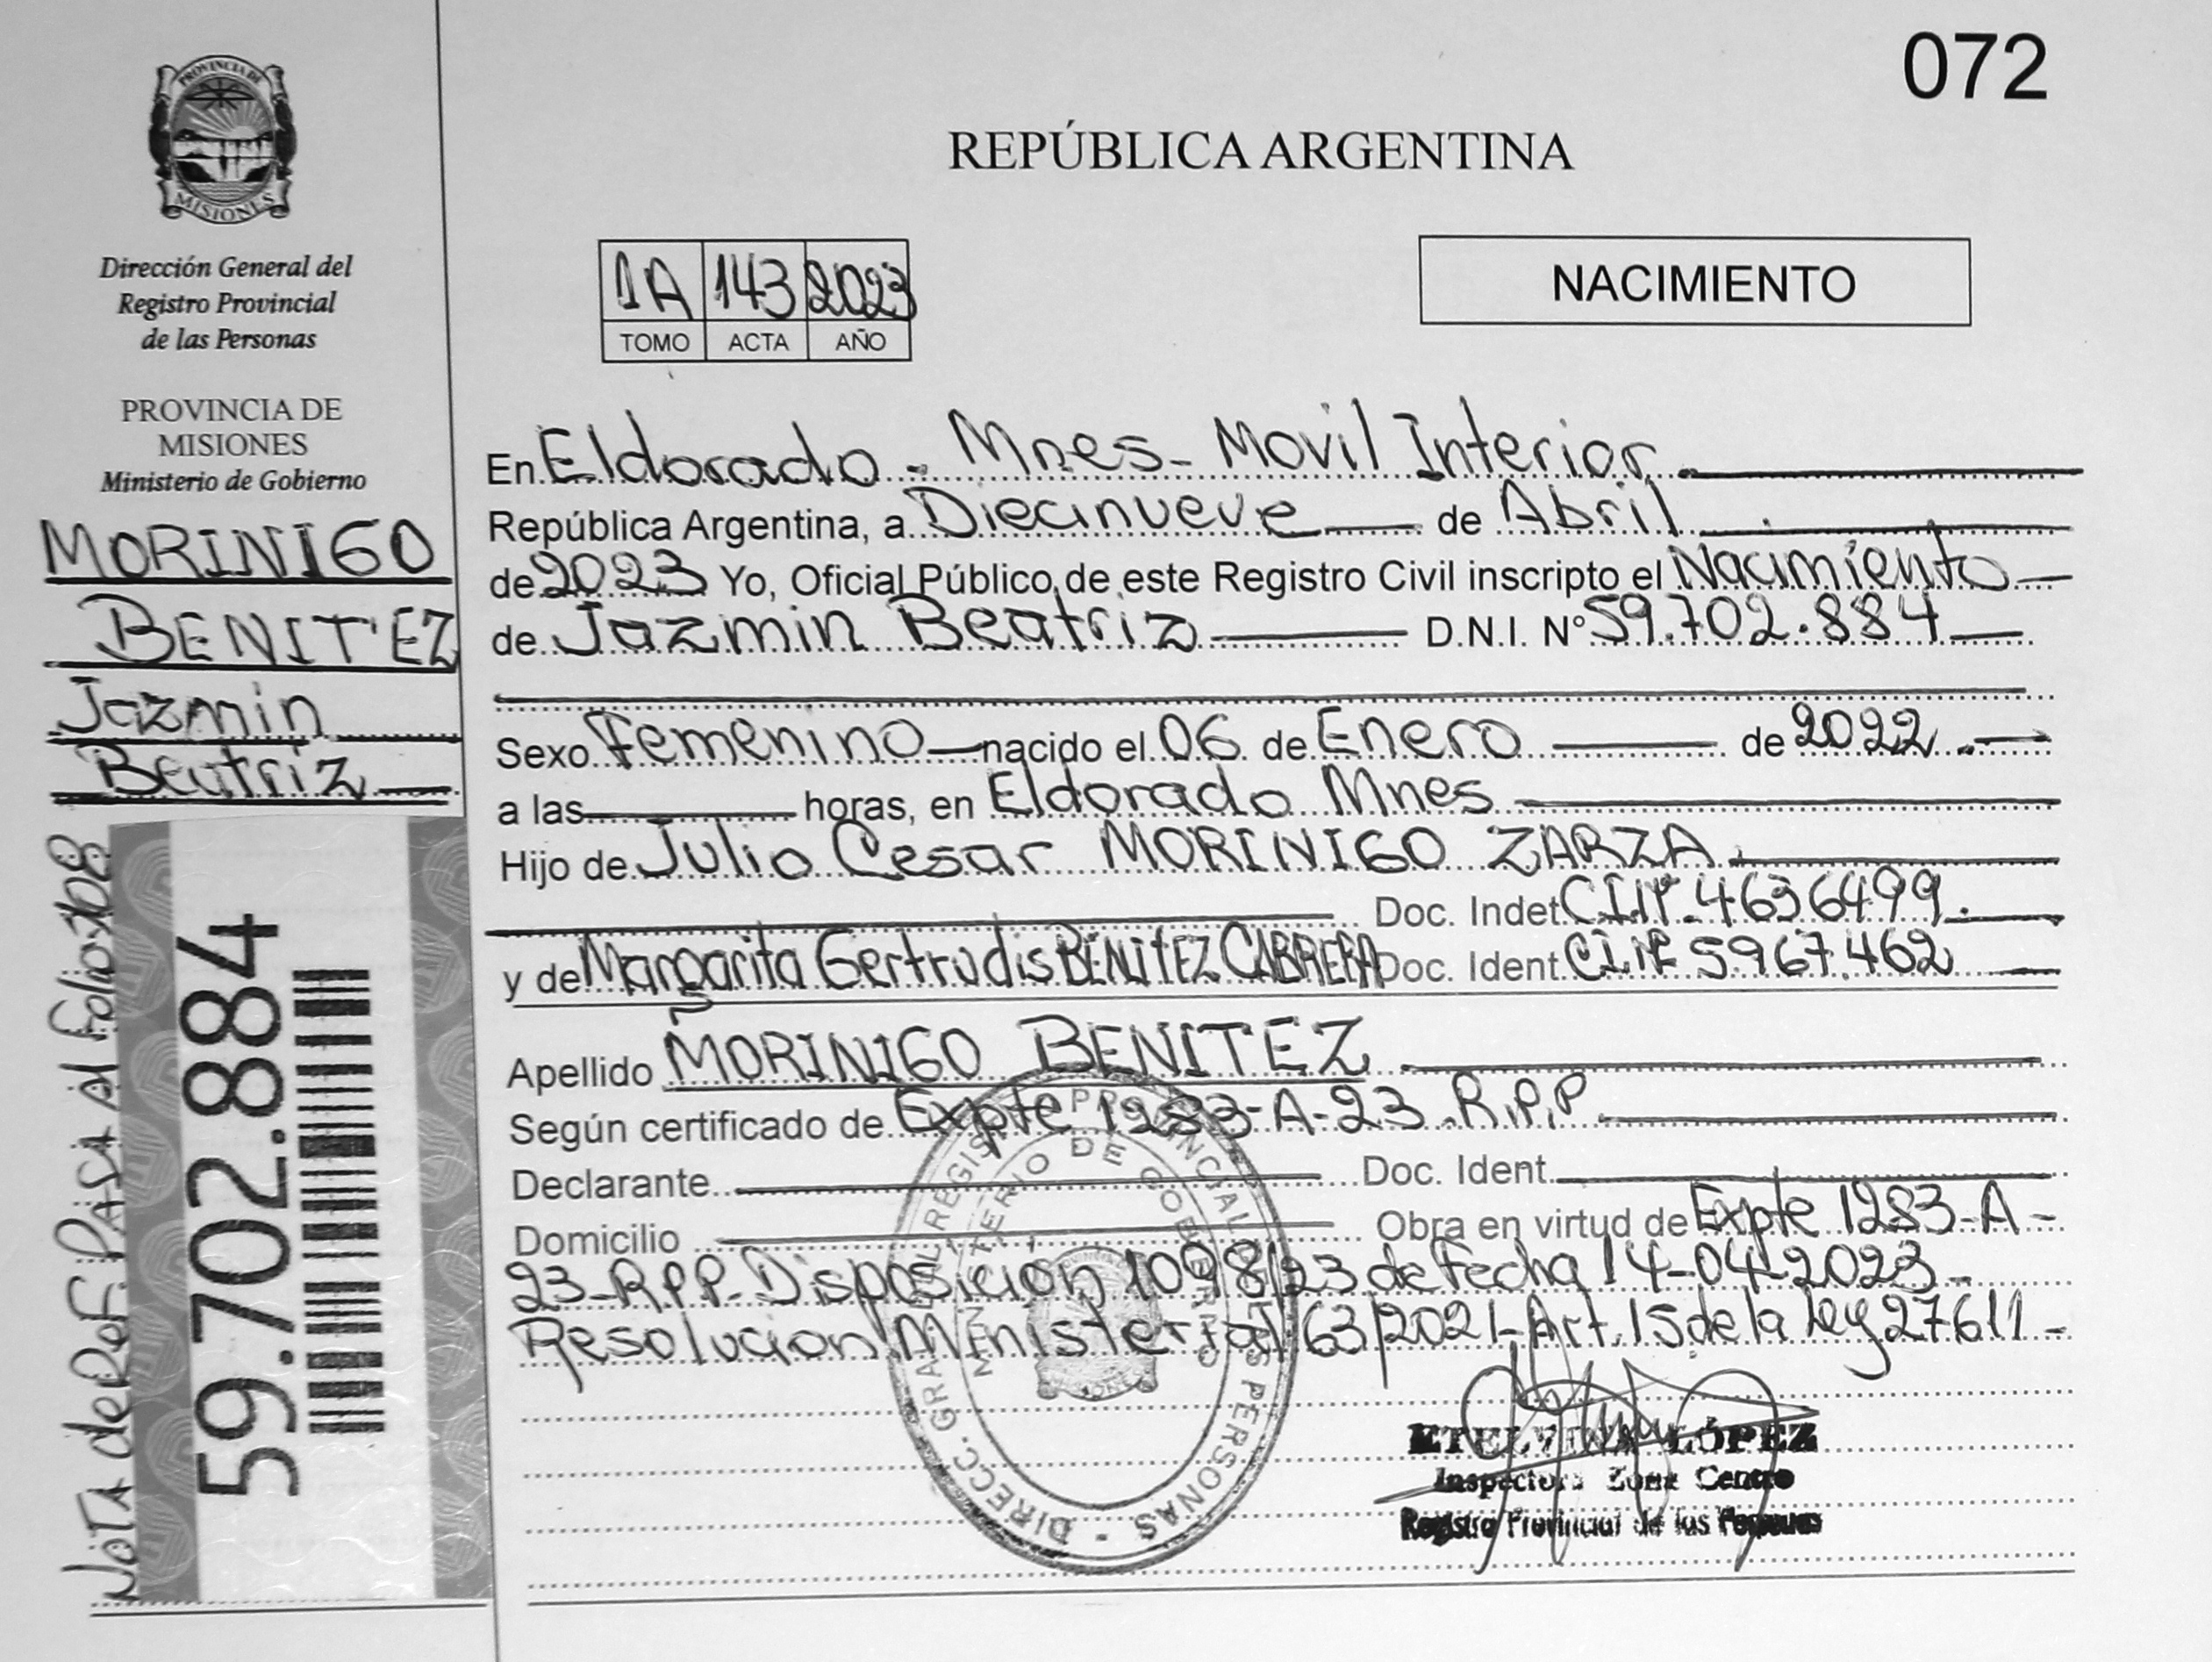 072
PROVINCIA DE
MISIONES
Dirección General del
Registro Provincial
de las Personas
PROVINCIA DE
MISIONES
Ministerio de Gobierno
MORINIGO
BENITEZ
Jazmin
Beatriz
Nota de Ref. Pasa al folio 108
59.702.884
REPÚBLICA ARGENTINA
1A 143 2023
TOMO ACTA AÑO
NACIMIENTO
En Eldorado - Mnes - Movil Interior
República Argentina, a Diecinueve de Abril
de 2023 Yo, Oficial Público de este Registro Civil inscripto el Nacimiento
de Jazmin Beatriz D.N.I. N° 59.702.884
Sexo Femenino nacido el 06 de Enero de 2022
a las horas, en Eldorado Mnes
Hijo de Julio Cesar MORINIGO ZARZA
Doc. Indet. CI Nº 4636499.
y de Margarita Gertrudis BENITEZ CABRERA Doc. Ident. CI Nº 5967.462
Apellido MORINIGO BENITEZ
Según certificado de Expte 1283-A-23. R.P.P.
Declarante Doc. Ident.
Domicilio Obra en virtud de Expte 1283-A-
23-R.P.P. Disposición 1098/23 de Fecha 14-04-2023-
Resolucion Ministerial 63/2021-Art. 15 de la ley 27.611-
DIRECC. GRAL. REGISTRO PROVINCIAL DE LAS PERSONAS -
MINISTERIO DE GOBIERNO
ETELVINA LÓPEZ
Inspectora Zona Centro
Registro Provincial de las Personas